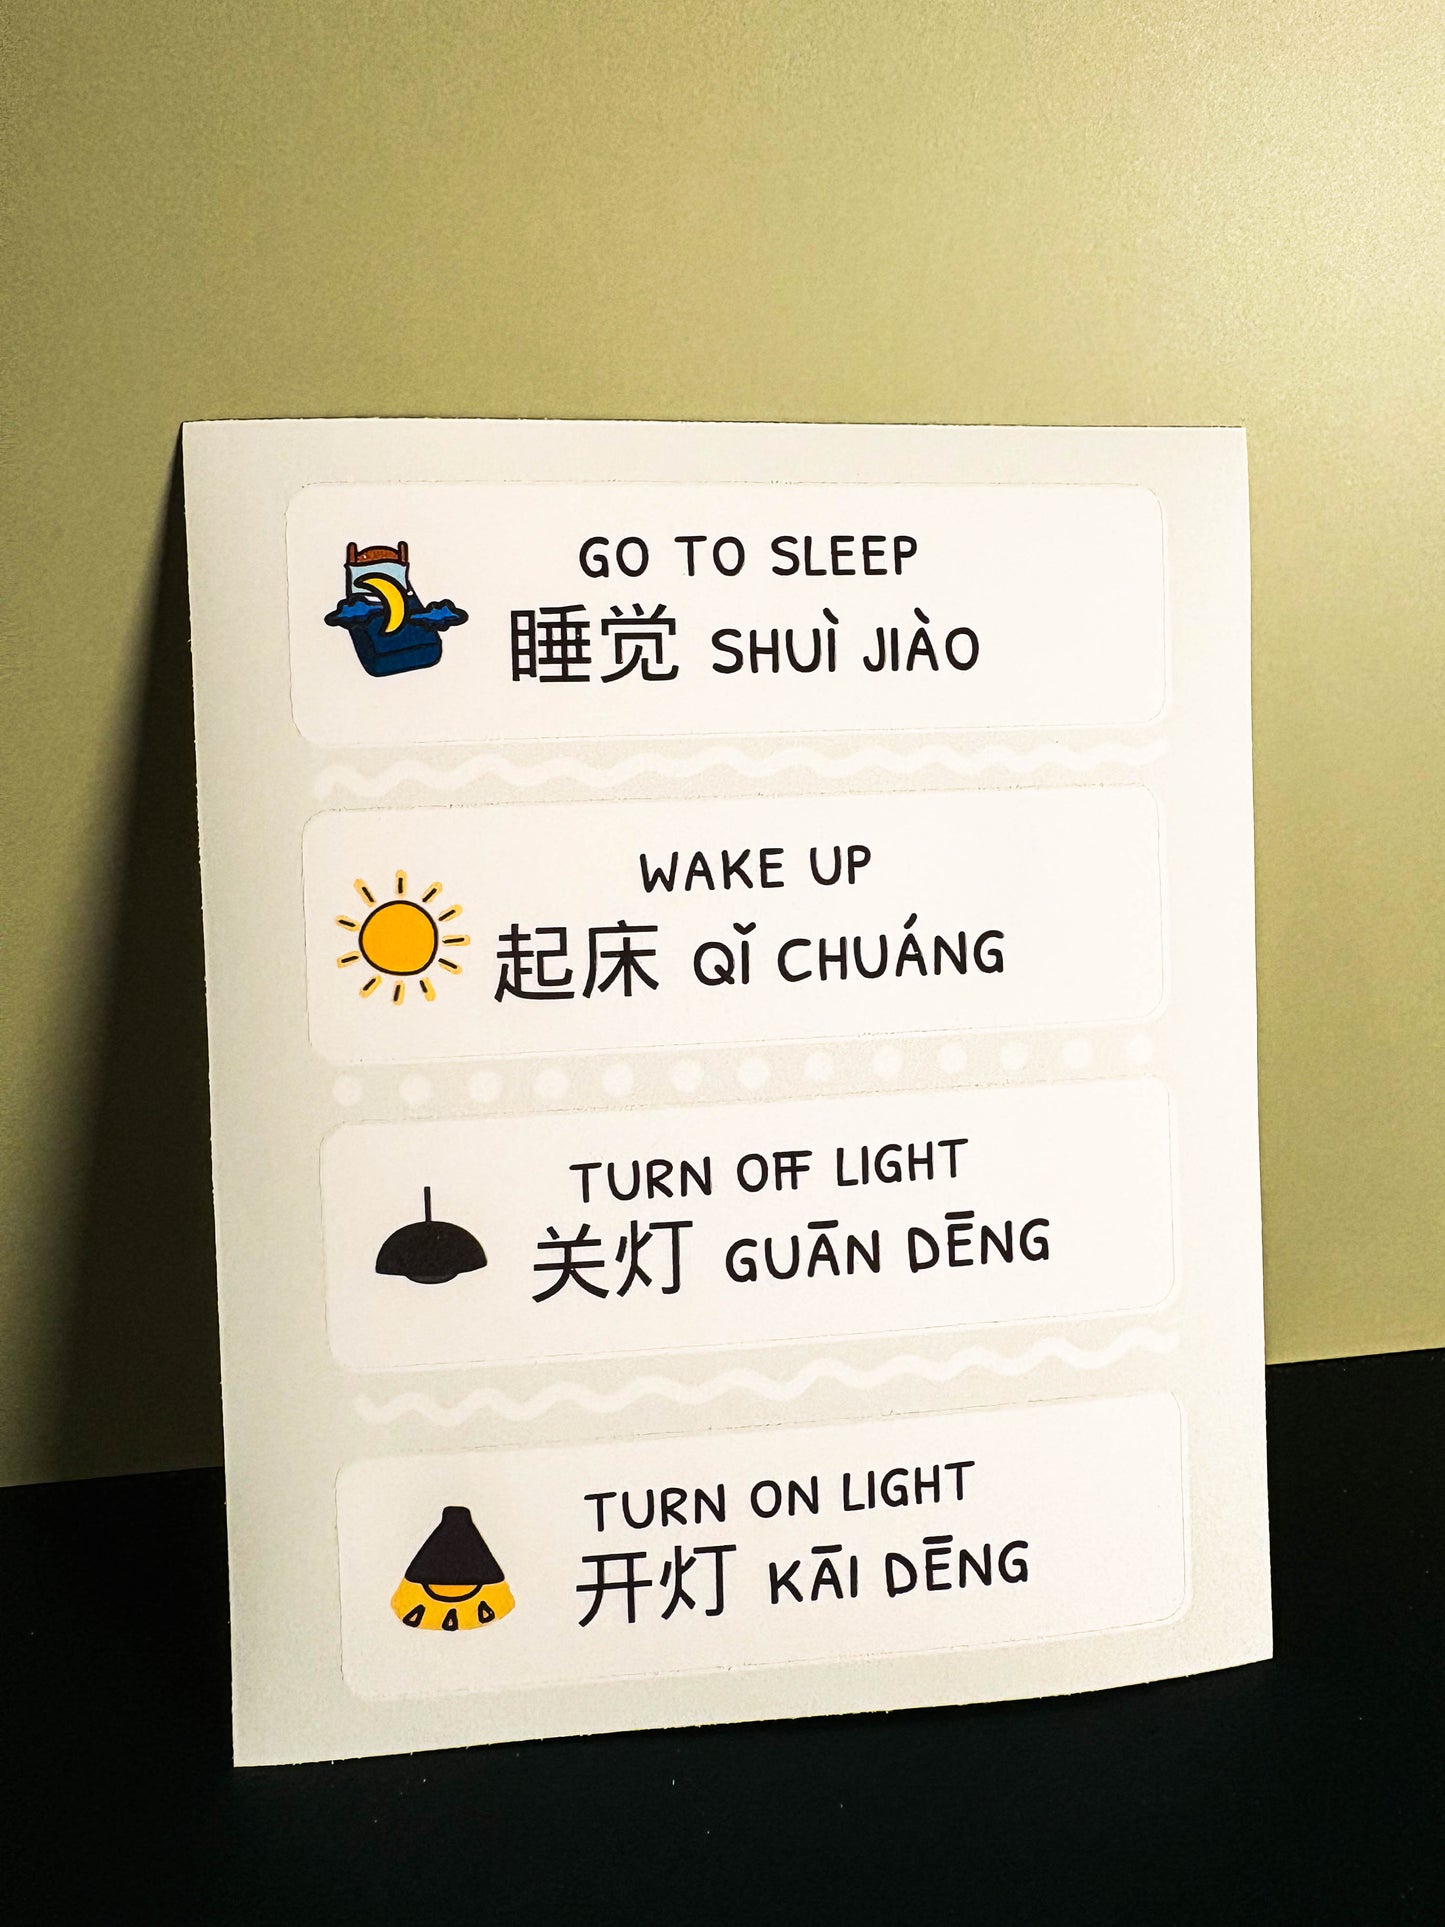 GO TO SLEEP
睡觉 SHUÌ JIÀO
WAKE UP
起床 QǏ CHUÁNG
TURN OFF LIGHT
关灯 GUĀN DĒNG
TURN ON LIGHT
开灯 KĀI DĒNG